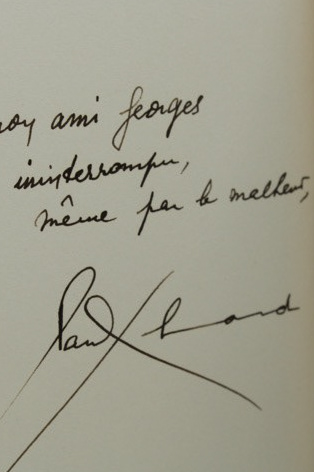 mon ami Georges
ininterrompu,
même par le malheur,
Paul Éluard